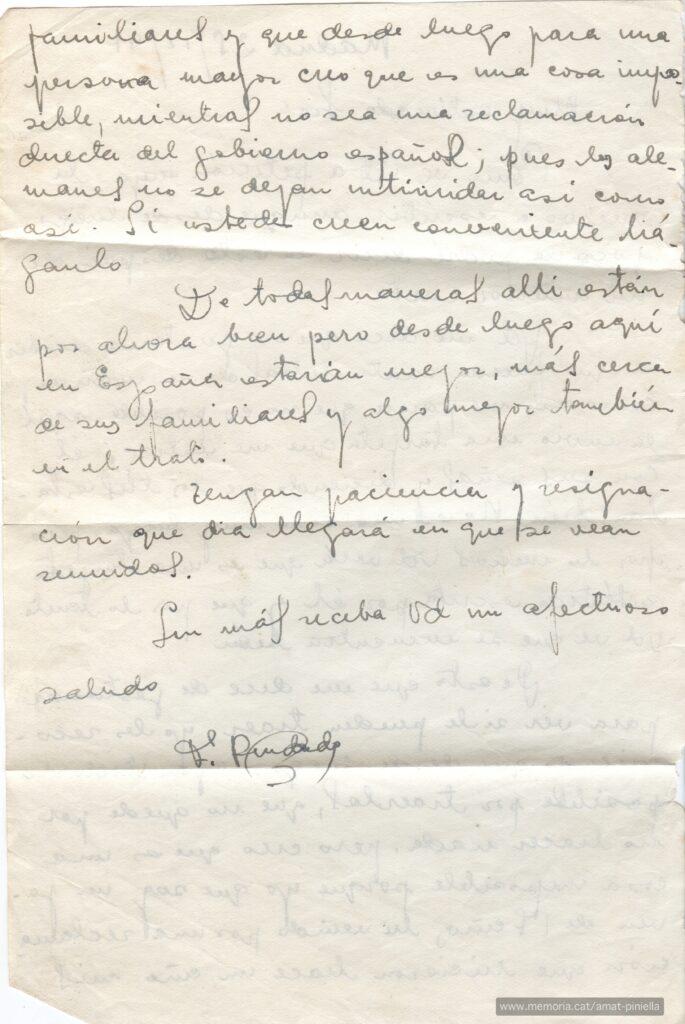 familiares y que desde luego para una
persona mayor creo que es una cosa impo-
sible, mientras no sea una reclamación
directa del gobierno español; pues los ale-
manes no se dejan intimidar así como
así. Si ustedes creen conveniente há-
ganlo
De todas maneras alli están
por ahora bien pero desde luego aquí
en España estarían mejor, más cerca
de sus familiares y algo mejor también
en el trato.
Tengan paciencia y resigna-
ción que dia llegará en que se vean
reunidos.
Sin más reciba Vd un afectuoso
saludo
www.memoria.cat/amat-piniella